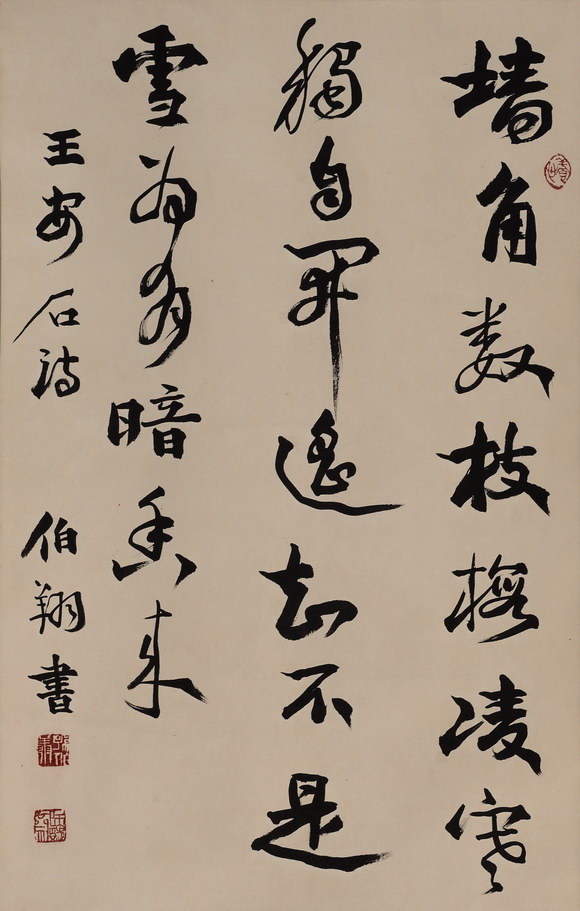 墙角数枝梅凌寒
独自开遥知不是
雪为有暗香来
王安石诗
伯翔书